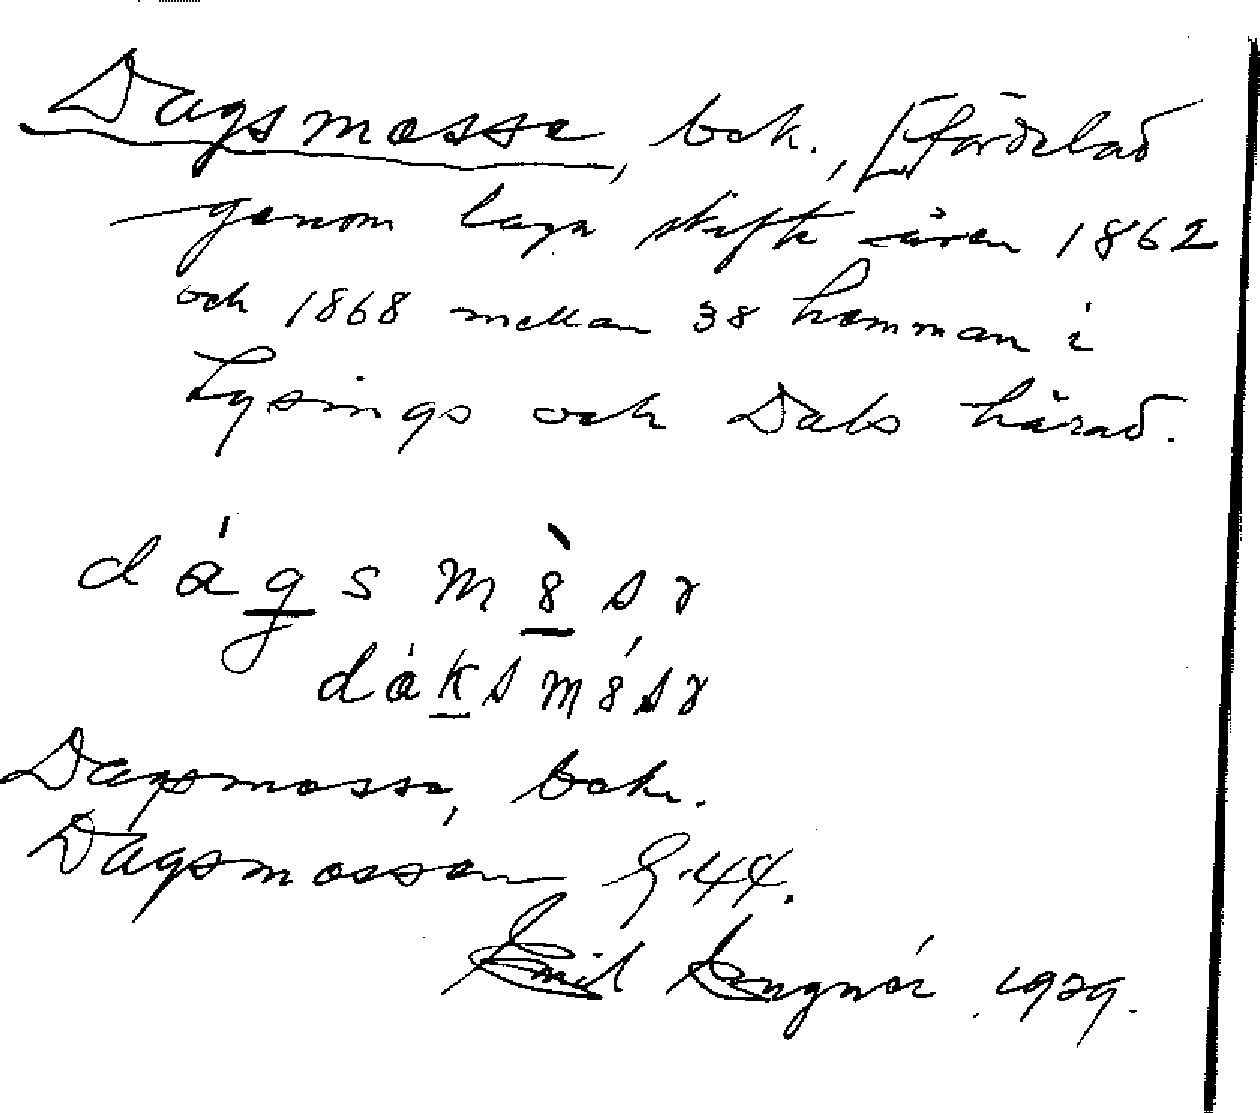 Dagsmosse, bok., [fördelad
genom laga skifte åren 1862
och 1868 mellan 38 hemman i
Lysings och Dals härad.
dágsm8̀sɤ
dáksm8́sɤ
Dagsmosse, bok.
Dagsmossen G. 44.
Emil 1929.